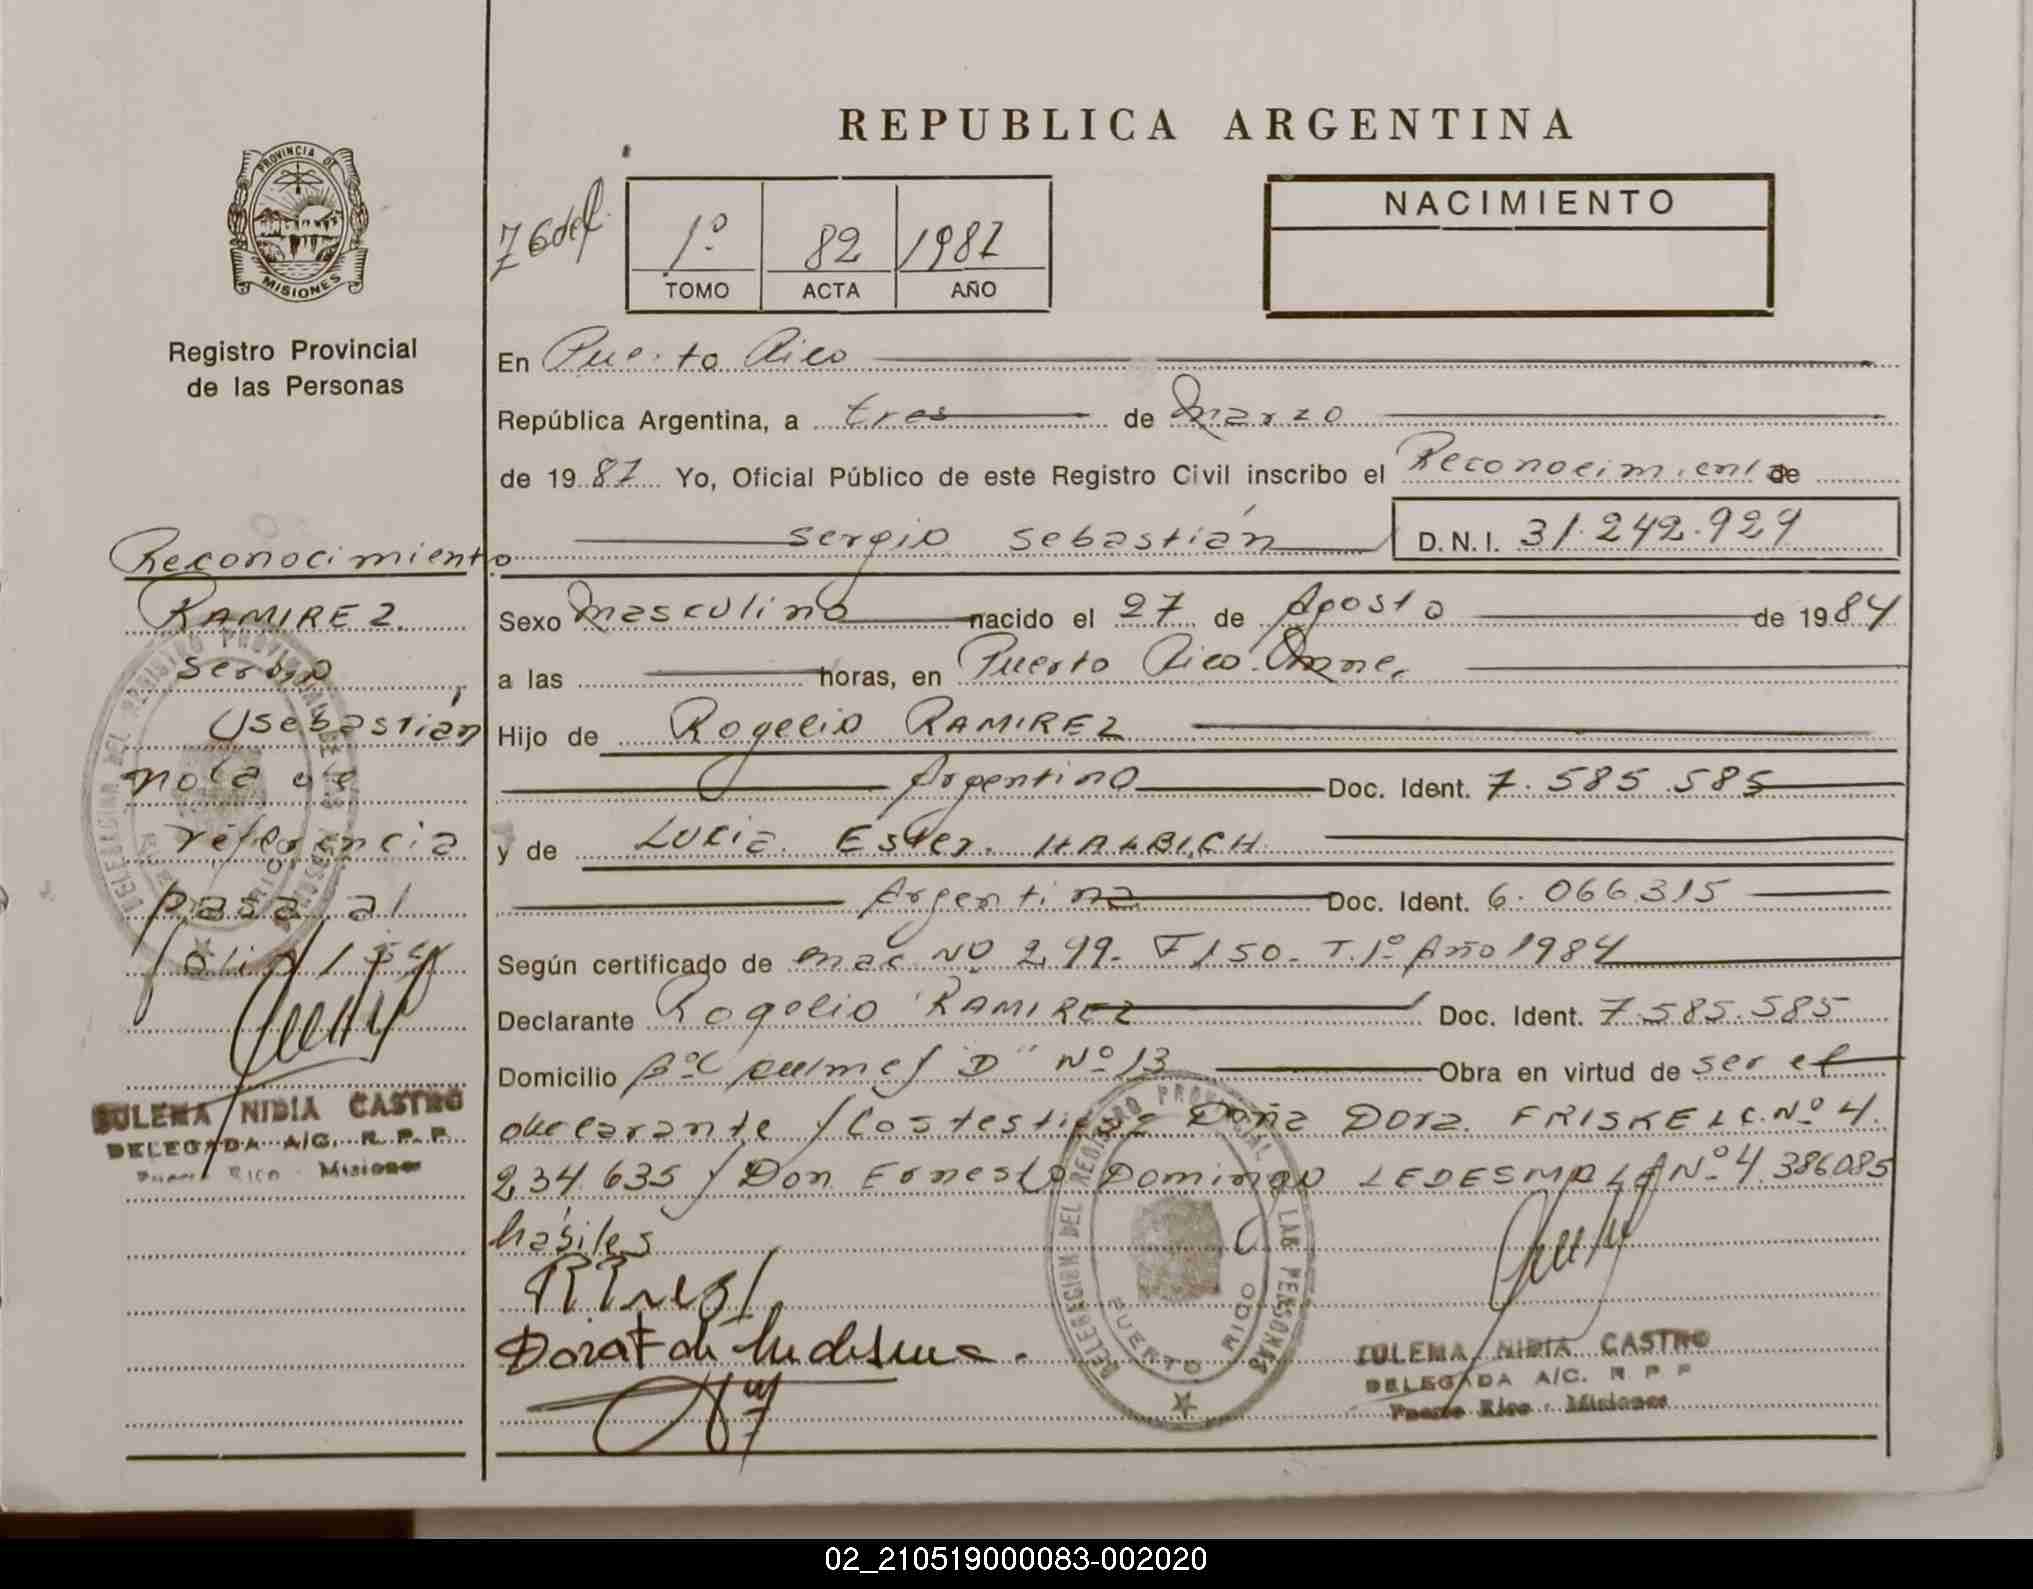 REPUBLICA ARGENTINA
PROVINCIA DE
MISIONES
Registro Provincial
de las Personas
1º 82 1987
TOMO ACTA AÑO
NACIMIENTO
En Puerto Rico
República Argentina, a tres de Marzo
de 1987 Yo, Oficial Público de este Registro Civil inscribo el Reconocimiento de
Sergio Sebastián D.N.I. 31.242.929
Sexo Masculino nacido el 27 de Agosto de 1984
a las horas, en Puerto Rico
Hijo de Rogelio RAMIREZ
Argentino Doc. Ident. 7.585.585
y de Lucia Ester HALBICH
Argentina Doc. Ident. 6.066.315
Según certificado de nac Nº 299- F 150- T.1º Año 1984
Declarante Rogelio RAMIREZ Doc. Ident. 7.585.585
Domicilio Nº 13 Obra en virtud de ser el
declarante y los testigos Doña Dora FRISKE L.C. Nº 4.
234.635 y Don Ernesto Domingo LEDESMA Nº 4.386085
hábiles
Dora F de Ledesma
DELEGACION DEL REGISTRO PROVINCIAL DE LAS PERSONAS
PUERTO RICO
ZULEMA NIDIA CASTRO
DELEGADA A/C. R P P
Puerto Rico - Misiones
Reconocimiento
RAMIREZ
Sergio
Sebastián
nota de
referencia
pasa al
folio 154
DELEGACION DEL REGISTRO PROVINCIAL DE LAS PERSONAS
PUERTO RICO
ZULEMA NIDIA CASTRO
DELEGADA A/C. R. P. P.
Puerto Rico - Misiones
02_210519000083-002020